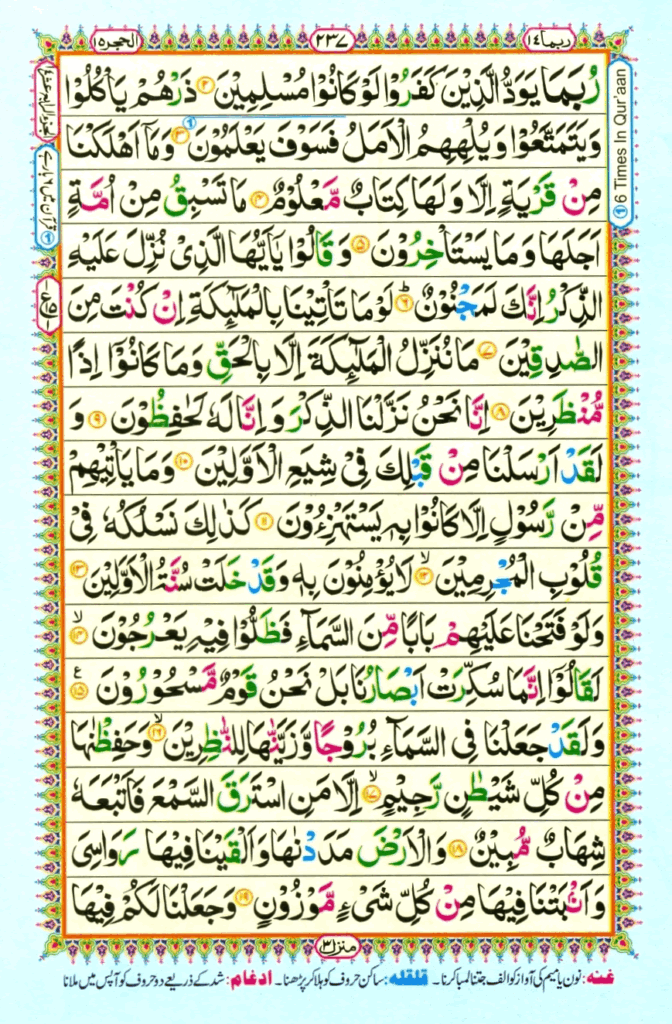 ربما ١٤
٢٣٧
الحجر ١٥
رُبَمَا يَوَدُّ الَّذِيْنَ كَفَرُوْا لَوْ كَانُوْا مُسْلِمِيْنَ ﴿۲﴾ ذَرْهُمْ يَاْكُلُوْا
وَيَتَمَتَّعُوْا وَيُلْهِهِمُ الْاَمَلُ فَسَوْفَ يَعْلَمُوْنَ ﴿۳﴾ وَمَاۤ اَهْلَكْنَا
مِنْ قَرْيَةٍ اِلَّا وَلَهَا كِتَابٌ مَّعْلُوْمٌ ﴿۴﴾ مَا تَسْبِقُ مِنْ اُمَّةٍ
اَجَلَهَا وَمَا يَسْتَاْخِرُوْنَ ﴿۵﴾ وَقَالُوْا يٰۤاَيُّهَا الَّذِيْ نُزِّلَ عَلَيْهِ
الذِّكْرُ اِنَّكَ لَمَجْنُوْنٌ ﴿۶﴾ لَوْ مَا تَاْتِيْنَا بِالْمَلٰٓئِكَةِ اِنْ كُنْتَ مِنَ
الصّٰدِقِيْنَ ﴿۷﴾ مَا نُنَزِّلُ الْمَلٰٓئِكَةَ اِلَّا بِالْحَقِّ وَمَا كَانُوْۤا اِذًا
مُّنْظَرِيْنَ ﴿۸﴾ اِنَّا نَحْنُ نَزَّلْنَا الذِّكْرَ وَاِنَّا لَهٗ لَحٰفِظُوْنَ ﴿۹﴾ وَ
لَقَدْ اَرْسَلْنَا مِنْ قَبْلِكَ فِيْ شِيَعِ الْاَوَّلِيْنَ ﴿۱۰﴾ وَمَا يَاْتِيْهِمْ
مِّنْ رَّسُوْلٍ اِلَّا كَانُوْا بِهٖ يَسْتَهْزِءُوْنَ ﴿۱۱﴾ كَذٰلِكَ نَسْلُكُهٗ فِيْ
قُلُوْبِ الْمُجْرِمِيْنَ ﴿۱۲﴾ لَا يُؤْمِنُوْنَ بِهٖ وَقَدْ خَلَتْ سُنَّةُ الْاَوَّلِيْنَ ﴿۱۳﴾
وَلَوْ فَتَحْنَا عَلَيْهِمْ بَابًا مِّنَ السَّمَآءِ فَظَلُّوْا فِيْهِ يَعْرُجُوْنَ ﴿۱۴﴾
لَقَالُوْۤا اِنَّمَا سُكِّرَتْ اَبْصَارُنَا بَلْ نَحْنُ قَوْمٌ مَّسْحُوْرُوْنَ ﴿۱۵﴾
وَلَقَدْ جَعَلْنَا فِي السَّمَآءِ بُرُوْجًا وَّزَيَّنّٰهَا لِلنّٰظِرِيْنَ ﴿۱۶﴾ وَحَفِظْنٰهَا
مِنْ كُلِّ شَيْطٰنٍ رَّجِيْمٍ ﴿۱۷﴾ اِلَّا مَنِ اسْتَرَقَ السَّمْعَ فَاَتْبَعَهٗ
شِهَابٌ مُّبِيْنٌ ﴿۱۸﴾ وَالْاَرْضَ مَدَدْنٰهَا وَاَلْقَيْنَا فِيْهَا رَوَاسِيَ
وَاَنْۢبَتْنَا فِيْهَا مِنْ كُلِّ شَيْءٍ مَّوْزُوْنٍ ﴿۱۹﴾ وَجَعَلْنَا لَكُمْ فِيْهَا
منزل ٣
غنه: نون یا میم کی آواز کو الف جتنا لمبا کرنا۔ قلقله: ساکن حروف کو ہلا کر پڑھنا۔ ادغام: شد کے ذریعے دو حروف کو آپس میں ملانا
6 Times In Qur'aan